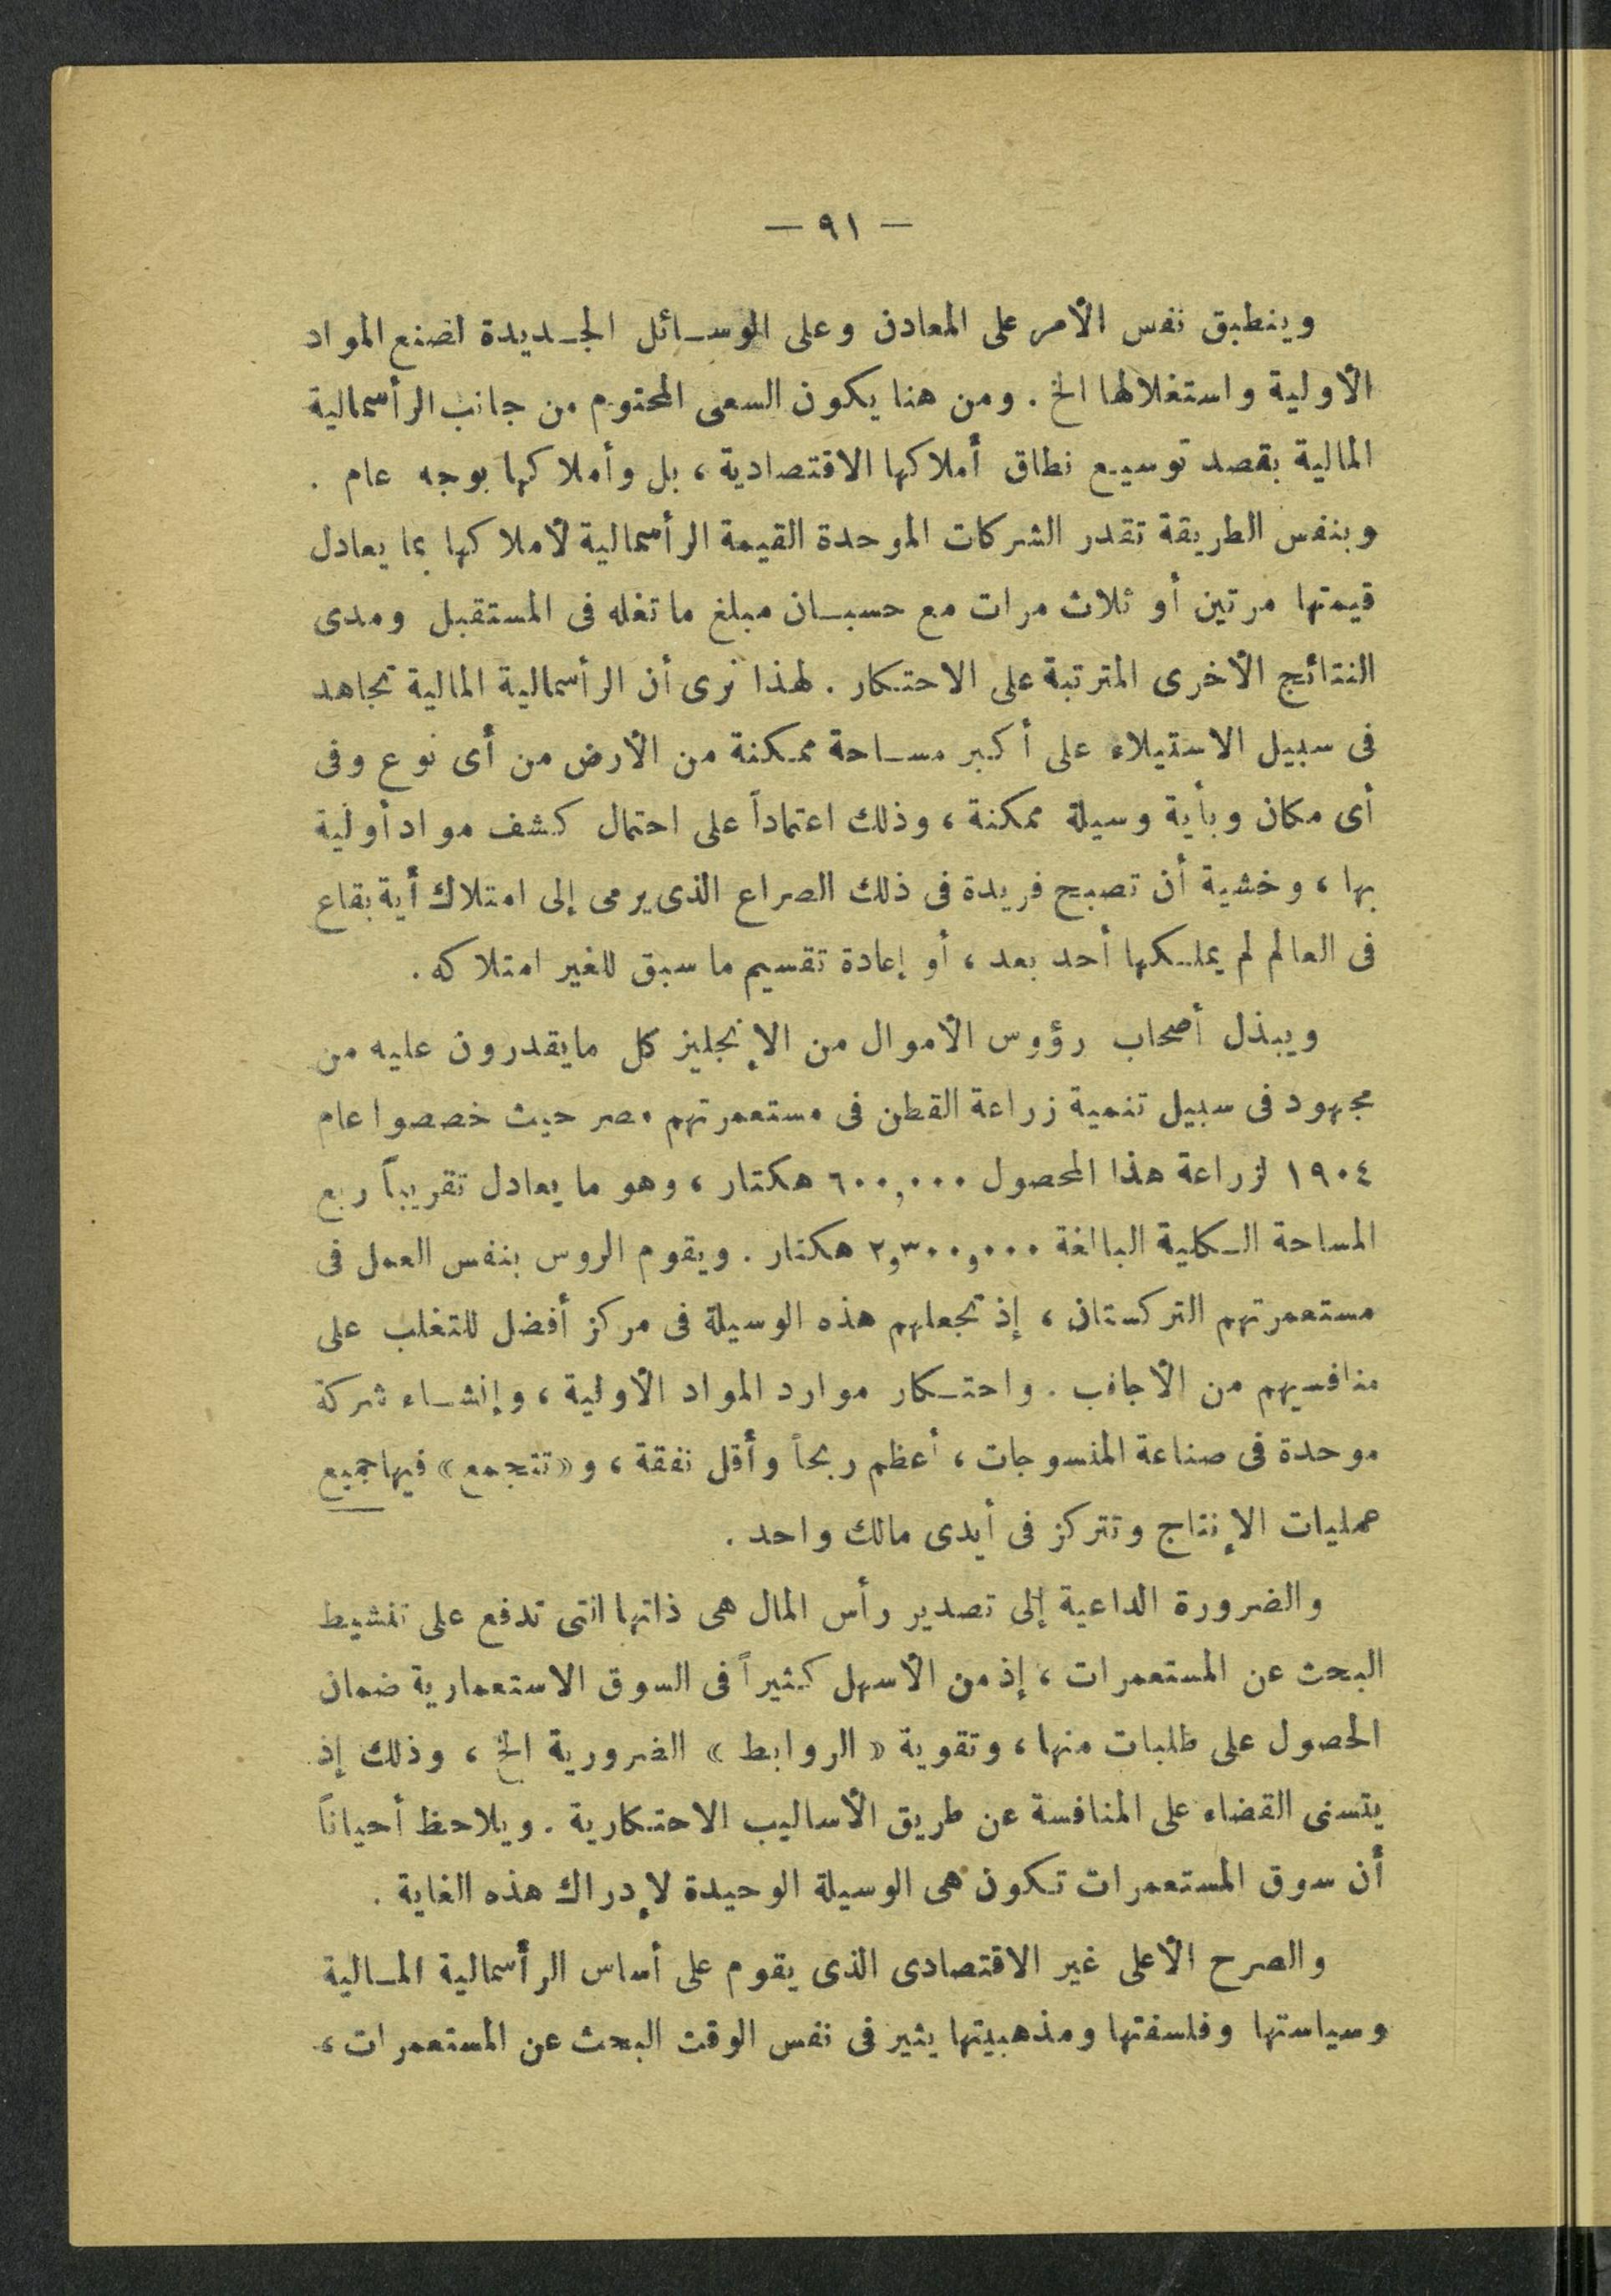 — ٩١ —
وينطبق نفس الأمر على المعادن وعلى الوسائل الجديدة لصنع المواد
الأولية واستغلالها الخ . ومن هنا يكون السعى المحتوم من جانب الرأسمالية
المالية بقصد توسيع نطاق أملاكها الاقتصادية ، بل وأملاكها بوجه عام .
وبنفس الطريقة تقدر الشركات الموحدة القيمة الرأسمالية لأملاكها بما يعادل
قيمتها مرتين أو ثلاث مرات مع حسبان مبلغ ما تغله فى المستقبل ومدى
النتائج الأخرى المترتبة على الاحتكار . لهذا نرى أن الرأسمالية المالية تجاهد
فى سبيل الاستيلاء على أكبر مساحة ممكنة من الأرض من أى نوع وفى
أى مكان وبأية وسيلة ممكنة ، وذلك اعتماداً على احتمال كشف مواد أولية
بها ، وخشية أن تصبح فريدة فى ذلك الصراع الذى يرمى إلى امتلاك أية بقاع
فى العالم لم يملكها أحد بعد ، أو إعادة تقسيم ما سبق للغير امتلاكه .
ويبذل أصحاب رؤوس الأموال من الإنجليز كل مايقدرون عليه من
مجهود فى سبيل تنمية زراعة القطن فى مستعمرتهم مصر حيث خصصوا عام
١٩٠٤ لزراعة هذا المحصول ٦٠٠,٠٠٠ هكتار ، وهو ما يعادل تقريباً ربع
المساحة الكلية البالغة ٢,٣٠٠,٠٠٠ هكتار . ويقوم الروس بنفس العمل فى
مستعمرتهم التركستان ، إذ تجعلهم هذه الوسيلة فى مركز أفضل للتغلب على
منافسيهم من الأجانب . واحتكار موارد المواد الأولية ، وإنشاء شركة
موحدة فى صناعة المنسوجات ، أعظم ربحاً وأقل نفقة ، و « تتجمع » فيها جميع
عمليات الإنتاج وتتركز فى أيدى مالك واحد .
والضرورة الداعية إلى تصدير رأس المال هى ذاتها التى تدفع على تنشيط
البحث عن المستعمرات ، إذ من الأسهل كثيراً فى السوق الاستعمارية ضمان
الحصول على طلبات منها ، وتقوية « الروابط » الضرورية الخ ، وذلك إذ
يتسنى القضاء على المنافسة عن طريق الأساليب الاحتكارية . ويلاحظ أحياناً
أن سوق المستعمرات تكون هى الوسيلة الوحيدة لإدراك هذه الغاية .
والصرح الأعلى غير الاقتصادى الذى يقوم على أساس الرأسمالية المالية
وسياستها وفلسفتها ومذهبيتها يثير فى نفس الوقت البحث عن المستعمرات ،